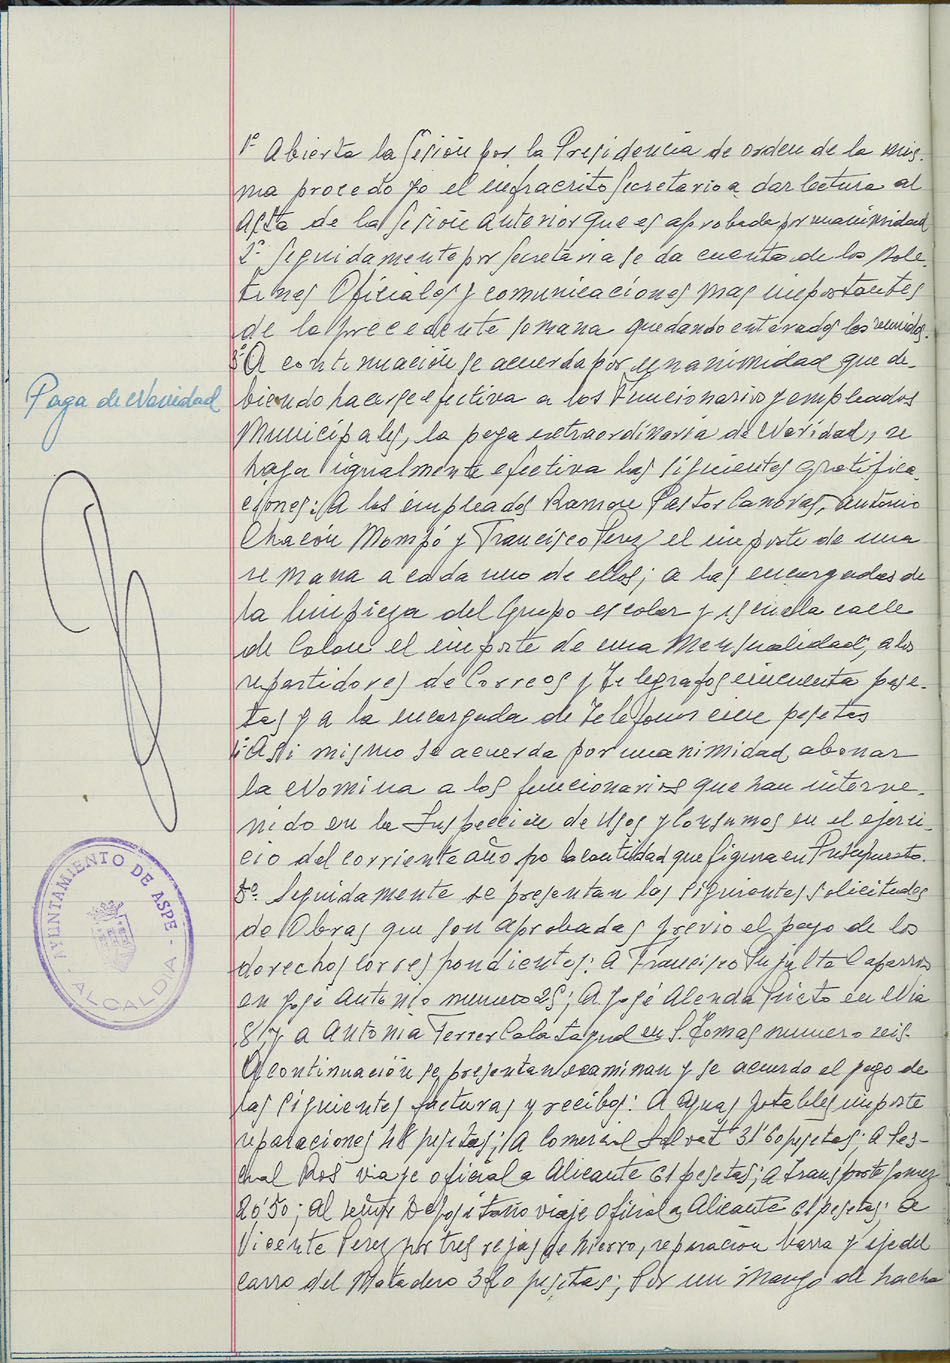 1º Abierta la Sesión por la Presidencia de orden de la mis-
ma procedo yo el infracrito Secretario a dar lectura al
Acta de la Sesión anterior que es aprobada por unanimidad
2º Seguidamente por Secretaria se da cuenta de los Bole-
tines Oficiales y comunicaciones mas importantes
de la precedente semana quedando enterados los reunidos.
3º A continuación se acuerda por unanimidad que de-
Paga de Navidad
biendo hacerse efectiva a los Funcionarios y empleados
Municipales, la paga extraordinaria de Navidad, se
haga igualmente efectiva las siguientes gratifica-
ciones: A los empleados Ramon Pastor Canovas, Antonio
Chacón Mompó y Francisco Perez el importe de una
semana a cada uno de ellos; a las encargadas de
la limpieza del Grupo escolar y escuela calle
de Colon el importe de una Mensualidad; a los
repartidores de Correos y Telegrafos cincuenta pese-
tas y a la encargada de Telefonos cien pesetas
4º Asi mismo se acuerda por unanimidad abonar
la Nomina a los funcionarios que han interve-
nido en la Inspección de Usos y Consumos en el ejerci-
cio del corriente año por la cantidad que figura en Presupuesto.
AYUNTAMIENTO DE ASPE - ALCALDIA -
5º. Seguidamente se presentan las siguientes solicitudes
de Obras que son aprobadas previo el pago de los
derechos correspondientes: A Francisco Pujalte Caparros
en José Antonio numero 25; A José Alenda Prieto en Via
8 y a Antonia Ferrer Calatayud en S. Tomas numero seis.
A continuación se presentan examinan y se acuerdo el pago de
las siguientes facturas y recibos: A Aguas Potables importe
reparaciones 48 pesetas; A Comercial Salvat 31'60 pesetas; A Pas-
cual Ros viaje oficial a Alicante 61 pesetas; a Transporte Gomez
20'50; Al señor Depositario viaje oficial a Alicante 61 pesetas; a
Vicente Perez por tres rejas de hierro, reparación barra y eje del
carro del Matadero 320 pesetas; Por un mango de hacha